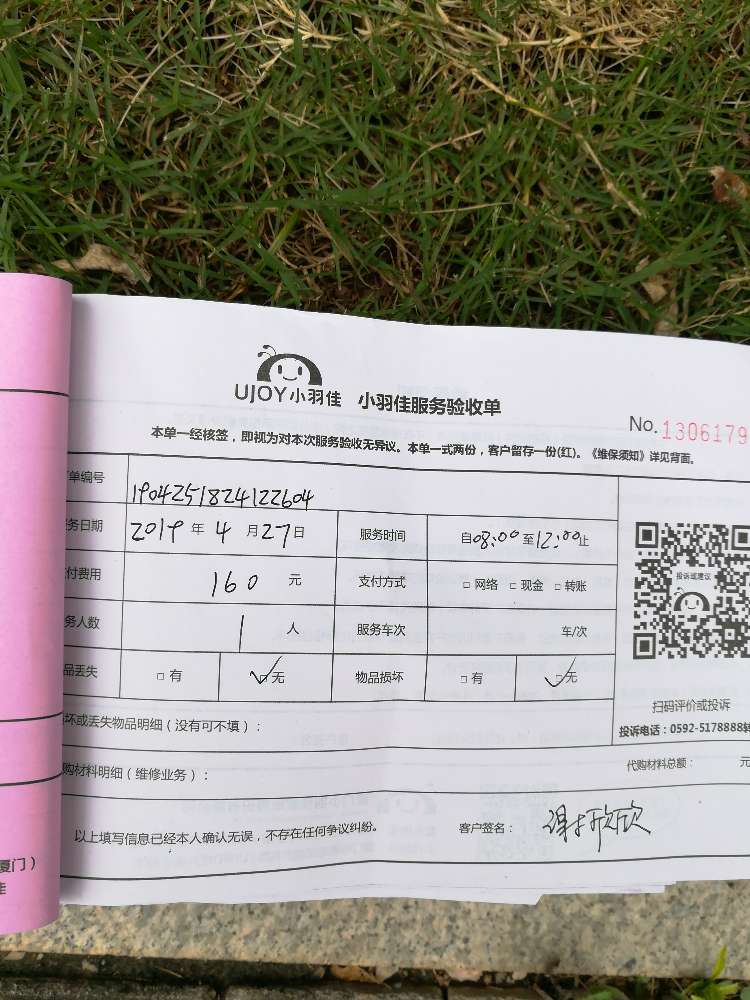 UJOY小羽佳 小羽佳服务验收单
No.1306179
本单一经核签，即视为对本次服务验收无异议。本单一式两份，客户留存一份(红)。《维保须知》详见背面。
单编号 1904251824122604
务日期 2019 年 4 月 27 日 服务时间 自08:00至12:00止
付费用 160 元 支付方式 □ 网络 □ 现金 □ 转账
务人数 1 人 服务车次 车/次
品丢失 □ 有 ☑ 无 物品损坏 □ 有 ☑ 无
投诉或建议
扫码评价或投诉
投诉电话：0592-5178888转
坏或丢失物品明细（没有可不填）：
购材料明细（维修业务）： 代购材料总额： 元
以上填写信息已经本人确认无误，不存在任何争议纠纷。 客户签名： 谢欣欣
厦门）
佳